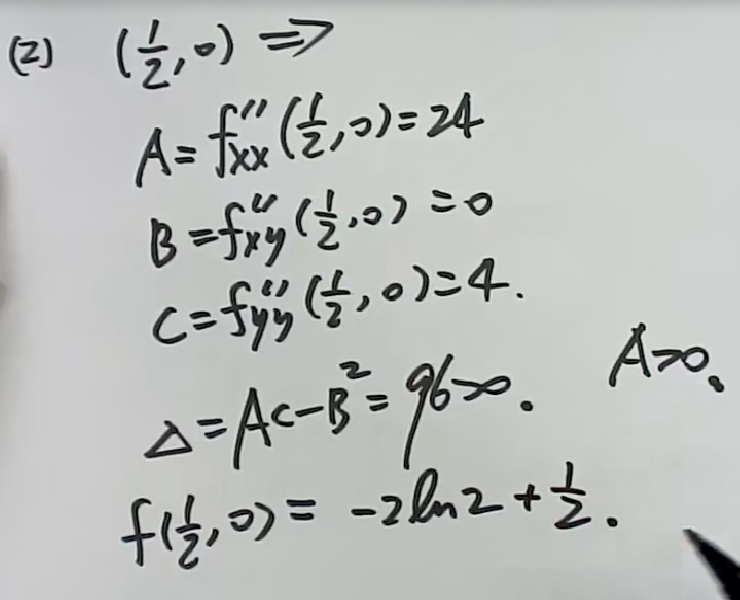 (2) (1/2, 0) ⇒
A = f''xx (1/2, 0) = 24
B = f''xy (1/2, 0) = 0
C = f''yy (1/2, 0) = 4.
Δ = AC - B² = 96 > 0. A > 0.
f(1/2, 0) = -2ln2 + 1/2.